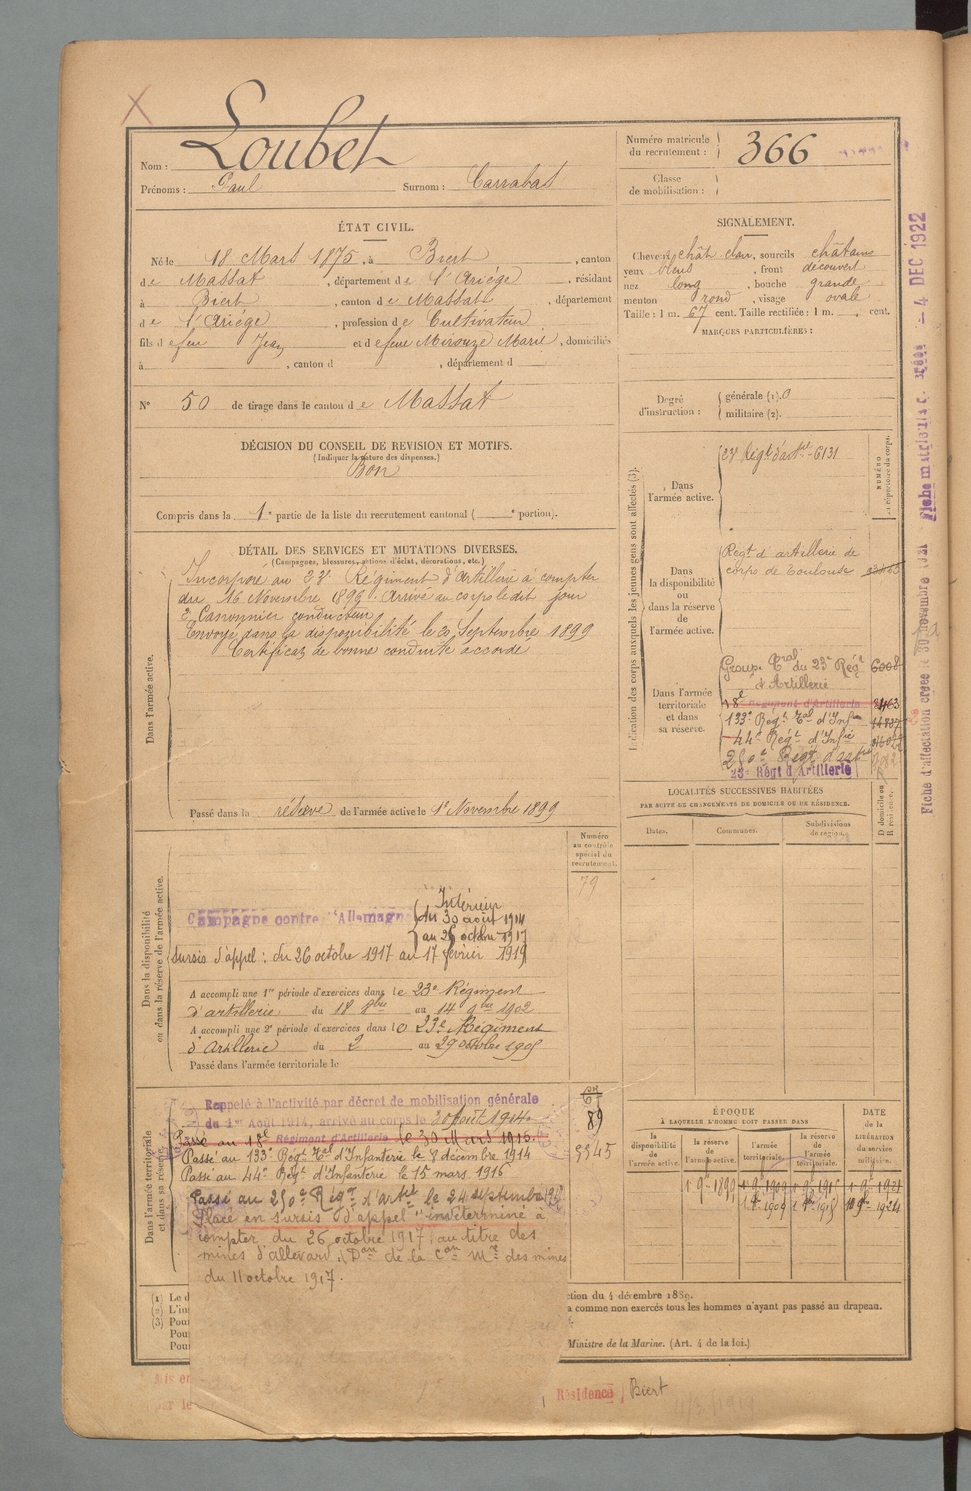 Nom : Loubet
Prénoms : Paul Surnom : Carrabat
Numéro matricule du recrutement : 366
Classe de mobilisation :
ÉTAT CIVIL.
Né le 18 Mars 1875, à Biert, canton
de Massat, département de l'Ariége, résidant
à Biert, canton de Massat, département
de l'Ariége, profession de Cultivateur
fils de feu Jean et de feue Mirouze Marie, domiciliés
à , canton d , département d
N° 50 de tirage dans le canton de Massat
DÉCISION DU CONSEIL DE REVISION ET MOTIFS.
(Indiquer la nature des dispenses.)
Bon
Compris dans la 1e partie de la liste du recrutement cantonal ( e portion).
SIGNALEMENT.
Cheveux chât clair, sourcils châtains
yeux bleus, front découvert
nez long, bouche grande
menton rond, visage ovale
Taille : 1 m. 67 cent. Taille rectifiée : 1 m. cent.
MARQUES PARTICULIÈRES :
Degré d'instruction : générale (1). 0
militaire (2).
Indication des corps auxquels les jeunes gens sont affectés (3).
NUMÉRO
Dans l'armée active.
23e Régt d'artie 6131
Dans la disponibilité ou dans la réserve de l'armée active.
Régt d'artillerie de
corps de Toulouse
Dans l'armée territoriale et dans sa réserve.
Groupe Tal du 23e Rég
d'Artillerie
18e Régiment d'Artillerie
133e Régt Tal d'Infie
44e Régt d'Infie
250e Régt d'artie
23e Régt d'Artillerie
DÉTAIL DES SERVICES ET MUTATIONS DIVERSES.
(Campagnes, blessures, actions d'éclat, décorations, etc.)
Dans l'armée active.
Incorporé au 23e Régiment d'Artillerie à compter
du 16 Novembre 1896. Arrivé au corps ledit jour
2e Cannonier conducteur
Envoyé dans la disponibilité le 20 Septembre 1899
Certificat de bonne conduite accordé
Passé dans la réserve de l'armée active le 1er Novembre 1899
LOCALITÉS SUCCESSIVES HABITÉES
PAR SUITE DE CHANGEMENTS DE DOMICILE OU DE RÉSIDENCE.
Dates. Communes. Subdivisions de région.
D domicile ou R résidence.
Numéro au contrôle spécial du recrutement.
79
Dans la disponibilité ou dans la réserve de l'armée active.
Campagne contre l'Allemagne
Intérieur
du 30 août 1914
au 25 octobre 1917
sursis d'appel : du 26 octobre 1917 au 17 février 1919
A accompli une 1re période d'exercices dans le 23e Régiment
d'artillerie du 18 8bre au 14 9bre 1902
A accompli une 2e période d'exercices dans le 23e Régiment
d'Artillerie du 2 au 29 octobre 1905
Passé dans l'armée territoriale le
Dans l'armée territoriale et dans sa réserve.
Rappelé à l'activité par décret de mobilisation générale
du 1er Août 1914, arrivé au corps le 30 Août 1914.
Passé au 18e Régiment d'Artillerie le 30 Mars 1915.
Passé au 133e Régt Tal d'Infanterie le 8 décembre 1914
Passé au 44e Régt d'Infanterie le 15 mars 1916
Passé au 250e Régt d'artie le 24 septembre
Placé en sursis d'appel indéterminé à
compter du 26 octobre 1917 au titre des
mines d'allevard, Don de la Con Mre des mines
du 11 octobre 1917.
89
5345
ÉPOQUE
À LAQUELLE L'HOMME DOIT PASSER DANS
la disponibilité de l'armée active. la réserve de l'armée active. l'armée territoriale. la réserve de l'armée territoriale.
DATE de la LIBÉRATION du service militaire.
ction du 4 décembre 1889.
a comme non exercés tous les hommes n'ayant pas passé au drapeau.
Ministre de la Marine. (Art. 4 de la loi.)
(1) Le d
(2) L'in
(3) Pour
Pou
Pour
Résidence Biert
Fiche d'affectation créée le 30 novembre
Fiche matricule créée 4 DEC 1922